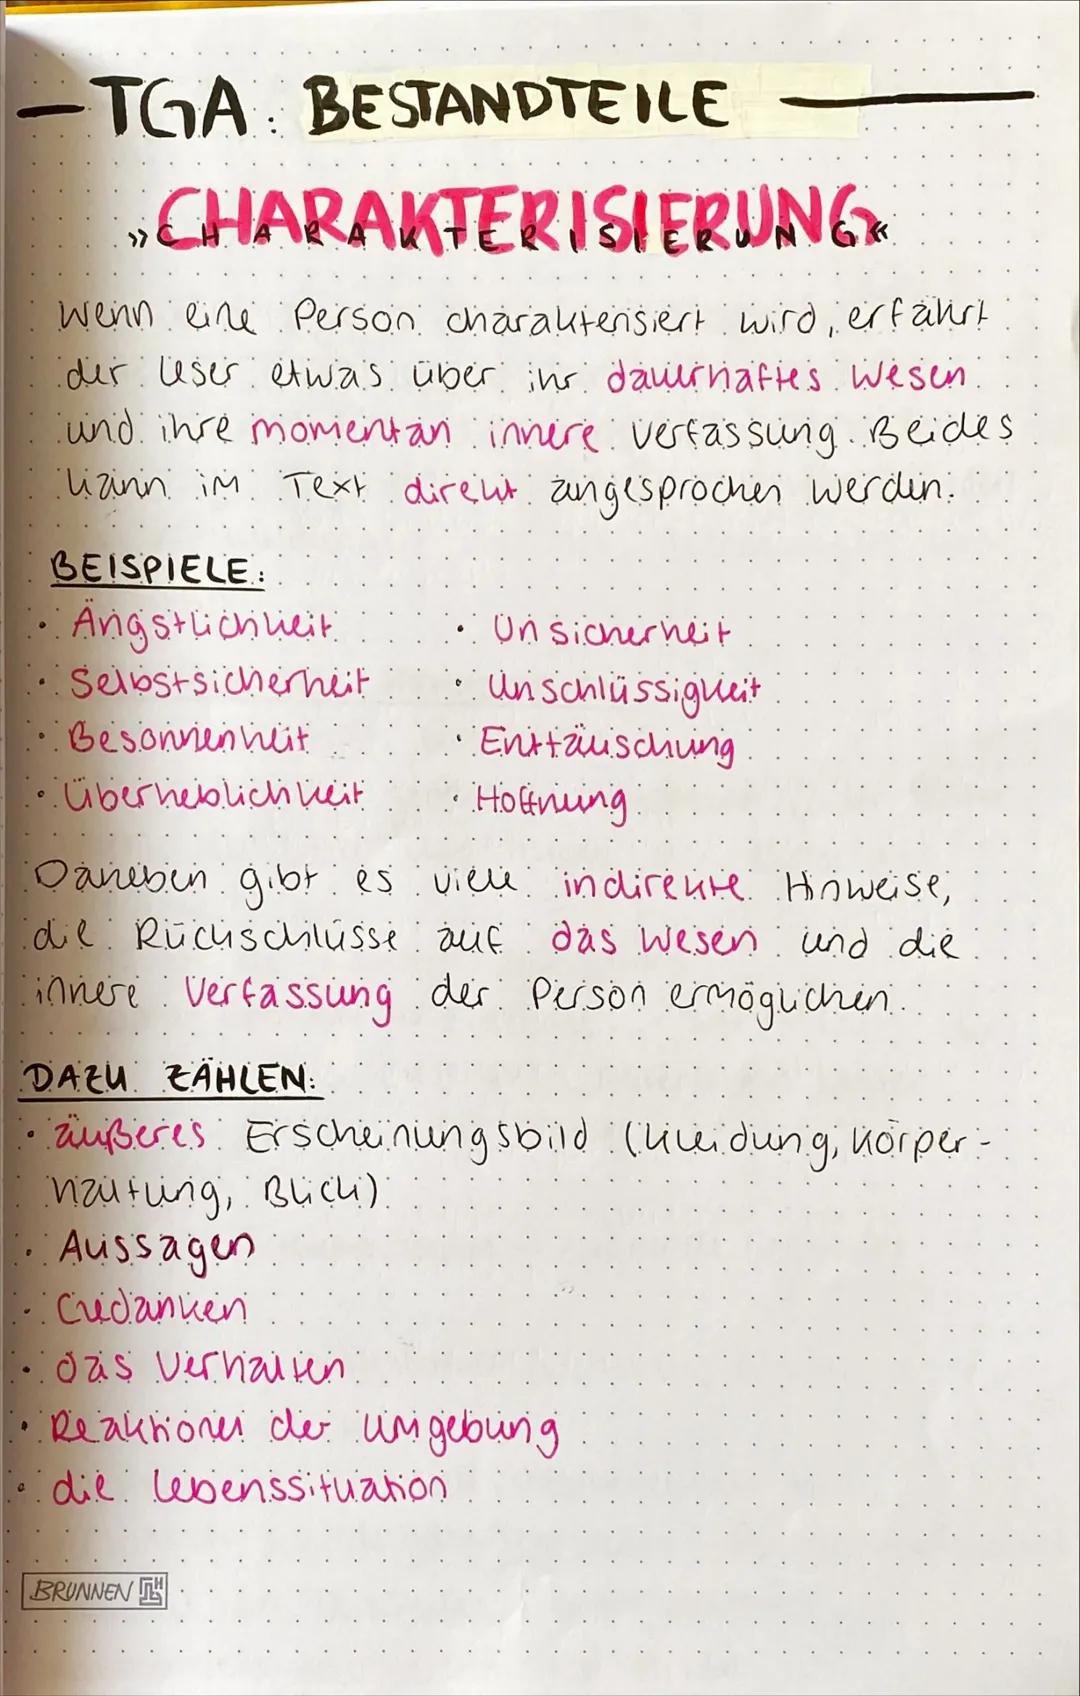 TGA: BESTANDTEILE
CHARAKTERISIERUNG
»CHARAKTERISIERUNG«
Wenn eine Person charakterisiert wird, erfährt
der Leser etwas über ihr dauerhaftes Wesen
und ihre momentan innere Verfassung. Beides
kann im Text direkt angesprochen werden.
BEISPIELE:
· Ängstlichkeit · Unsicherheit
· Selbstsicherheit · Unschlüssigkeit
· Besonnenheit · Enttäuschung
· Überheblichkeit · Hoffnung
Daneben gibt es viele indirekte Hinweise,
die Rückschlüsse auf das Wesen und die
innere Verfassung der Person ermöglichen.
DAZU ZÄHLEN:
· äußeres Erscheinungsbild (Kleidung, Körper-
haltung, Blick)
· Aussagen
· Gedanken
· das Verhalten
· Reaktionen der Umgebung
· die Lebenssituation
BRUNNEN